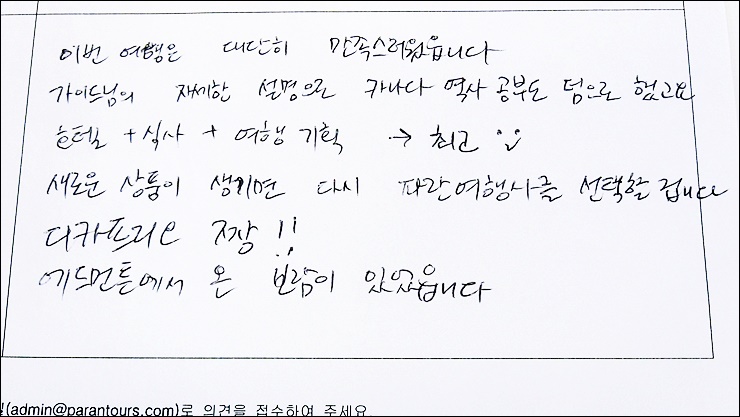 이번 여행은 대단히 만족스러웠읍니다
가이드님의 자세한 설명으로 카나다 역사 공부도 덤으로 했고요
호텔 + 식사 + 여행 기획 → 최고
새로운 상품이 생기면 다시 파란여행사를 선택할 겁니다
디카프리오 짱!!
에드먼튼에서 온 보람이 있었읍니다
(admin@parantours.com)로 의견을 접수하여 주세요.